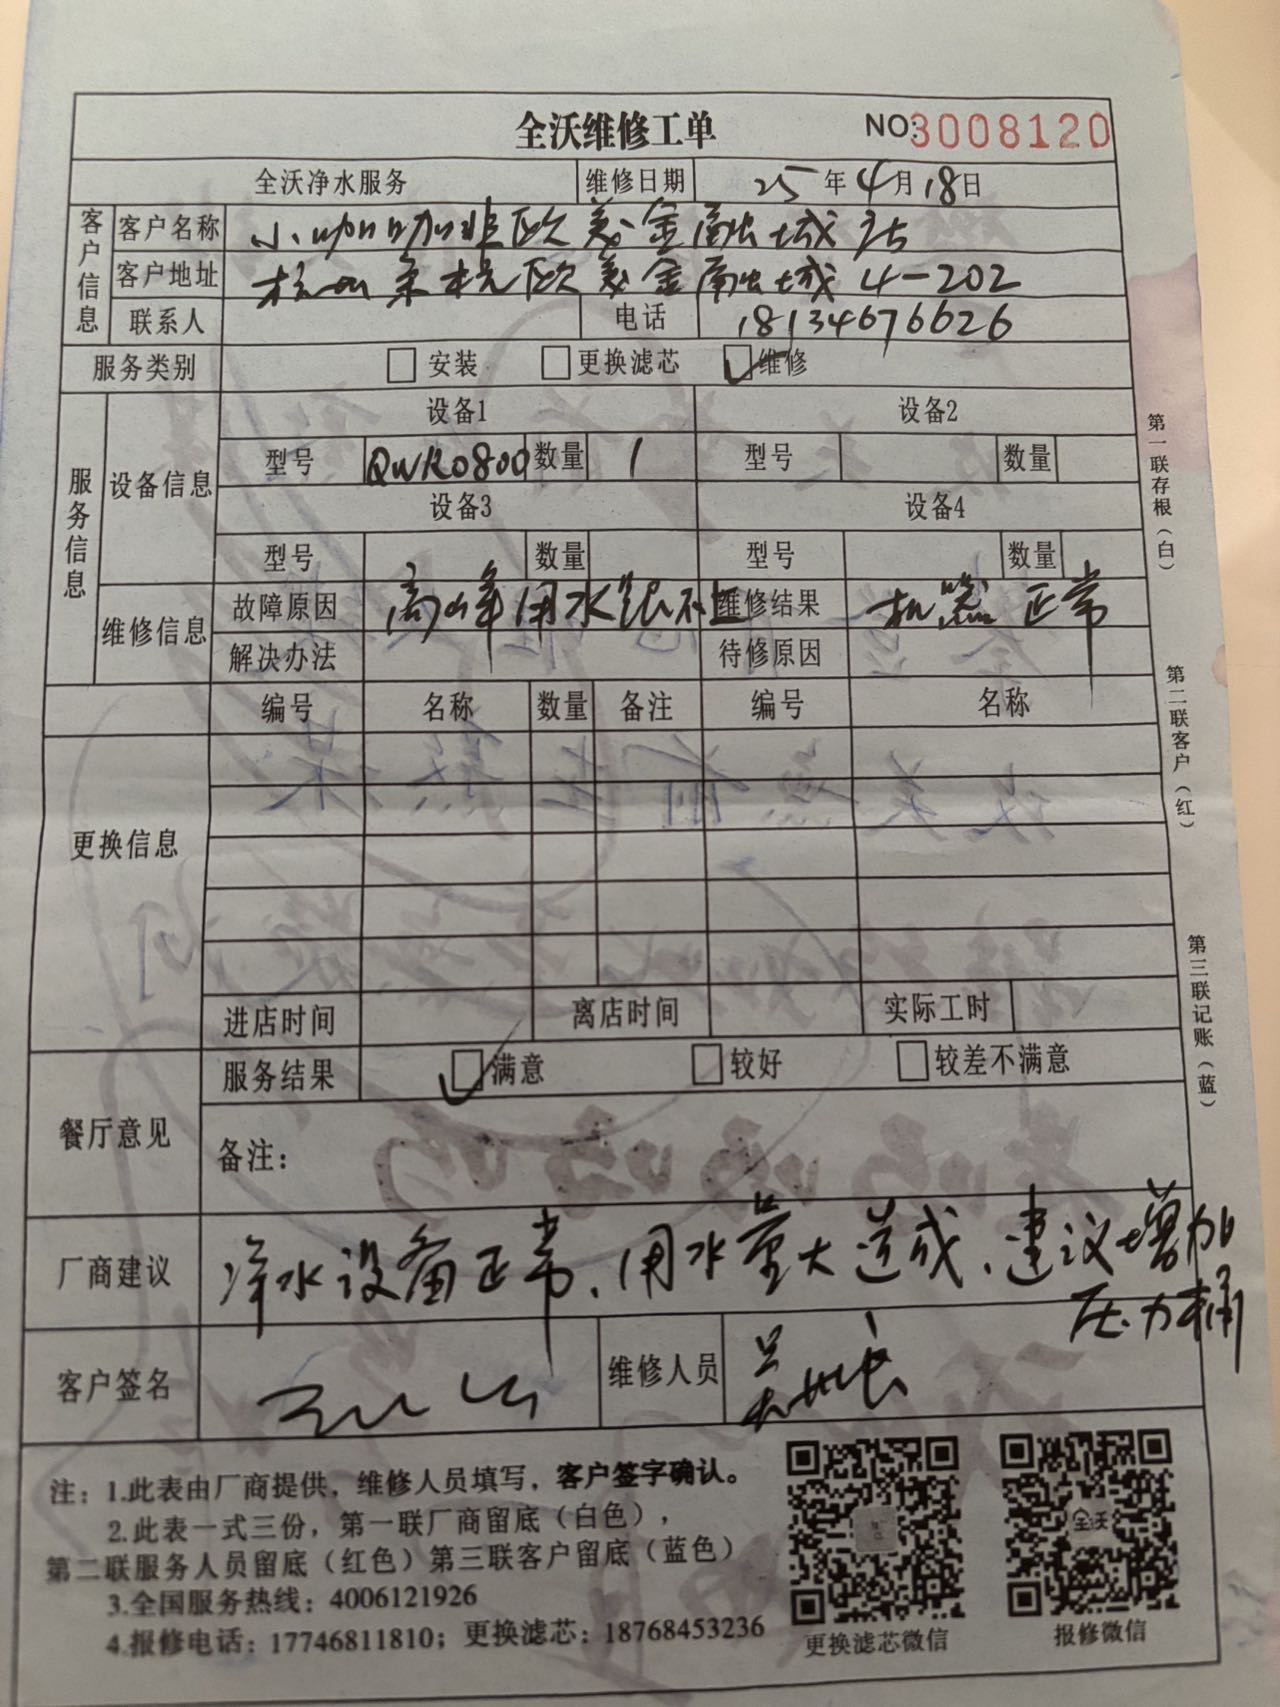 全沃维修工单 NO:3008120
全沃净水服务 维修日期 25年4月18日
客户信息
客户名称 小咖咖啡欧美金融城店
客户地址 杭州余杭欧美金融城4-202
联系人 电话 18134676626
服务类别 安装 更换滤芯 维修
服务信息
设备信息
设备1 设备2
型号 QWR0800 数量 1 型号 数量
设备3 设备4
型号 数量 型号 数量
维修信息
故障原因 高峰用水跟不上 维修结果 机器正常
解决办法 待修原因
更换信息
编号 名称 数量 备注 编号 名称
进店时间 离店时间 实际工时
餐厅意见
服务结果 满意 较好 较差不满意
备注:
厂商建议 净水设备正常、用水量大造成、建议增加
压力桶
客户签名 维修人员
注: 1.此表由厂商提供，维修人员填写，客户签字确认。
2.此表一式三份，第一联厂商留底（白色），
第二联服务人员留底（红色）第三联客户留底（蓝色）
3.全国服务热线: 4006121926
4.报修电话: 17746811810; 更换滤芯: 18768453236
更换滤芯微信 报修微信
全沃
第一联存根（白）
第二联客户（红）
第三联记账（蓝）